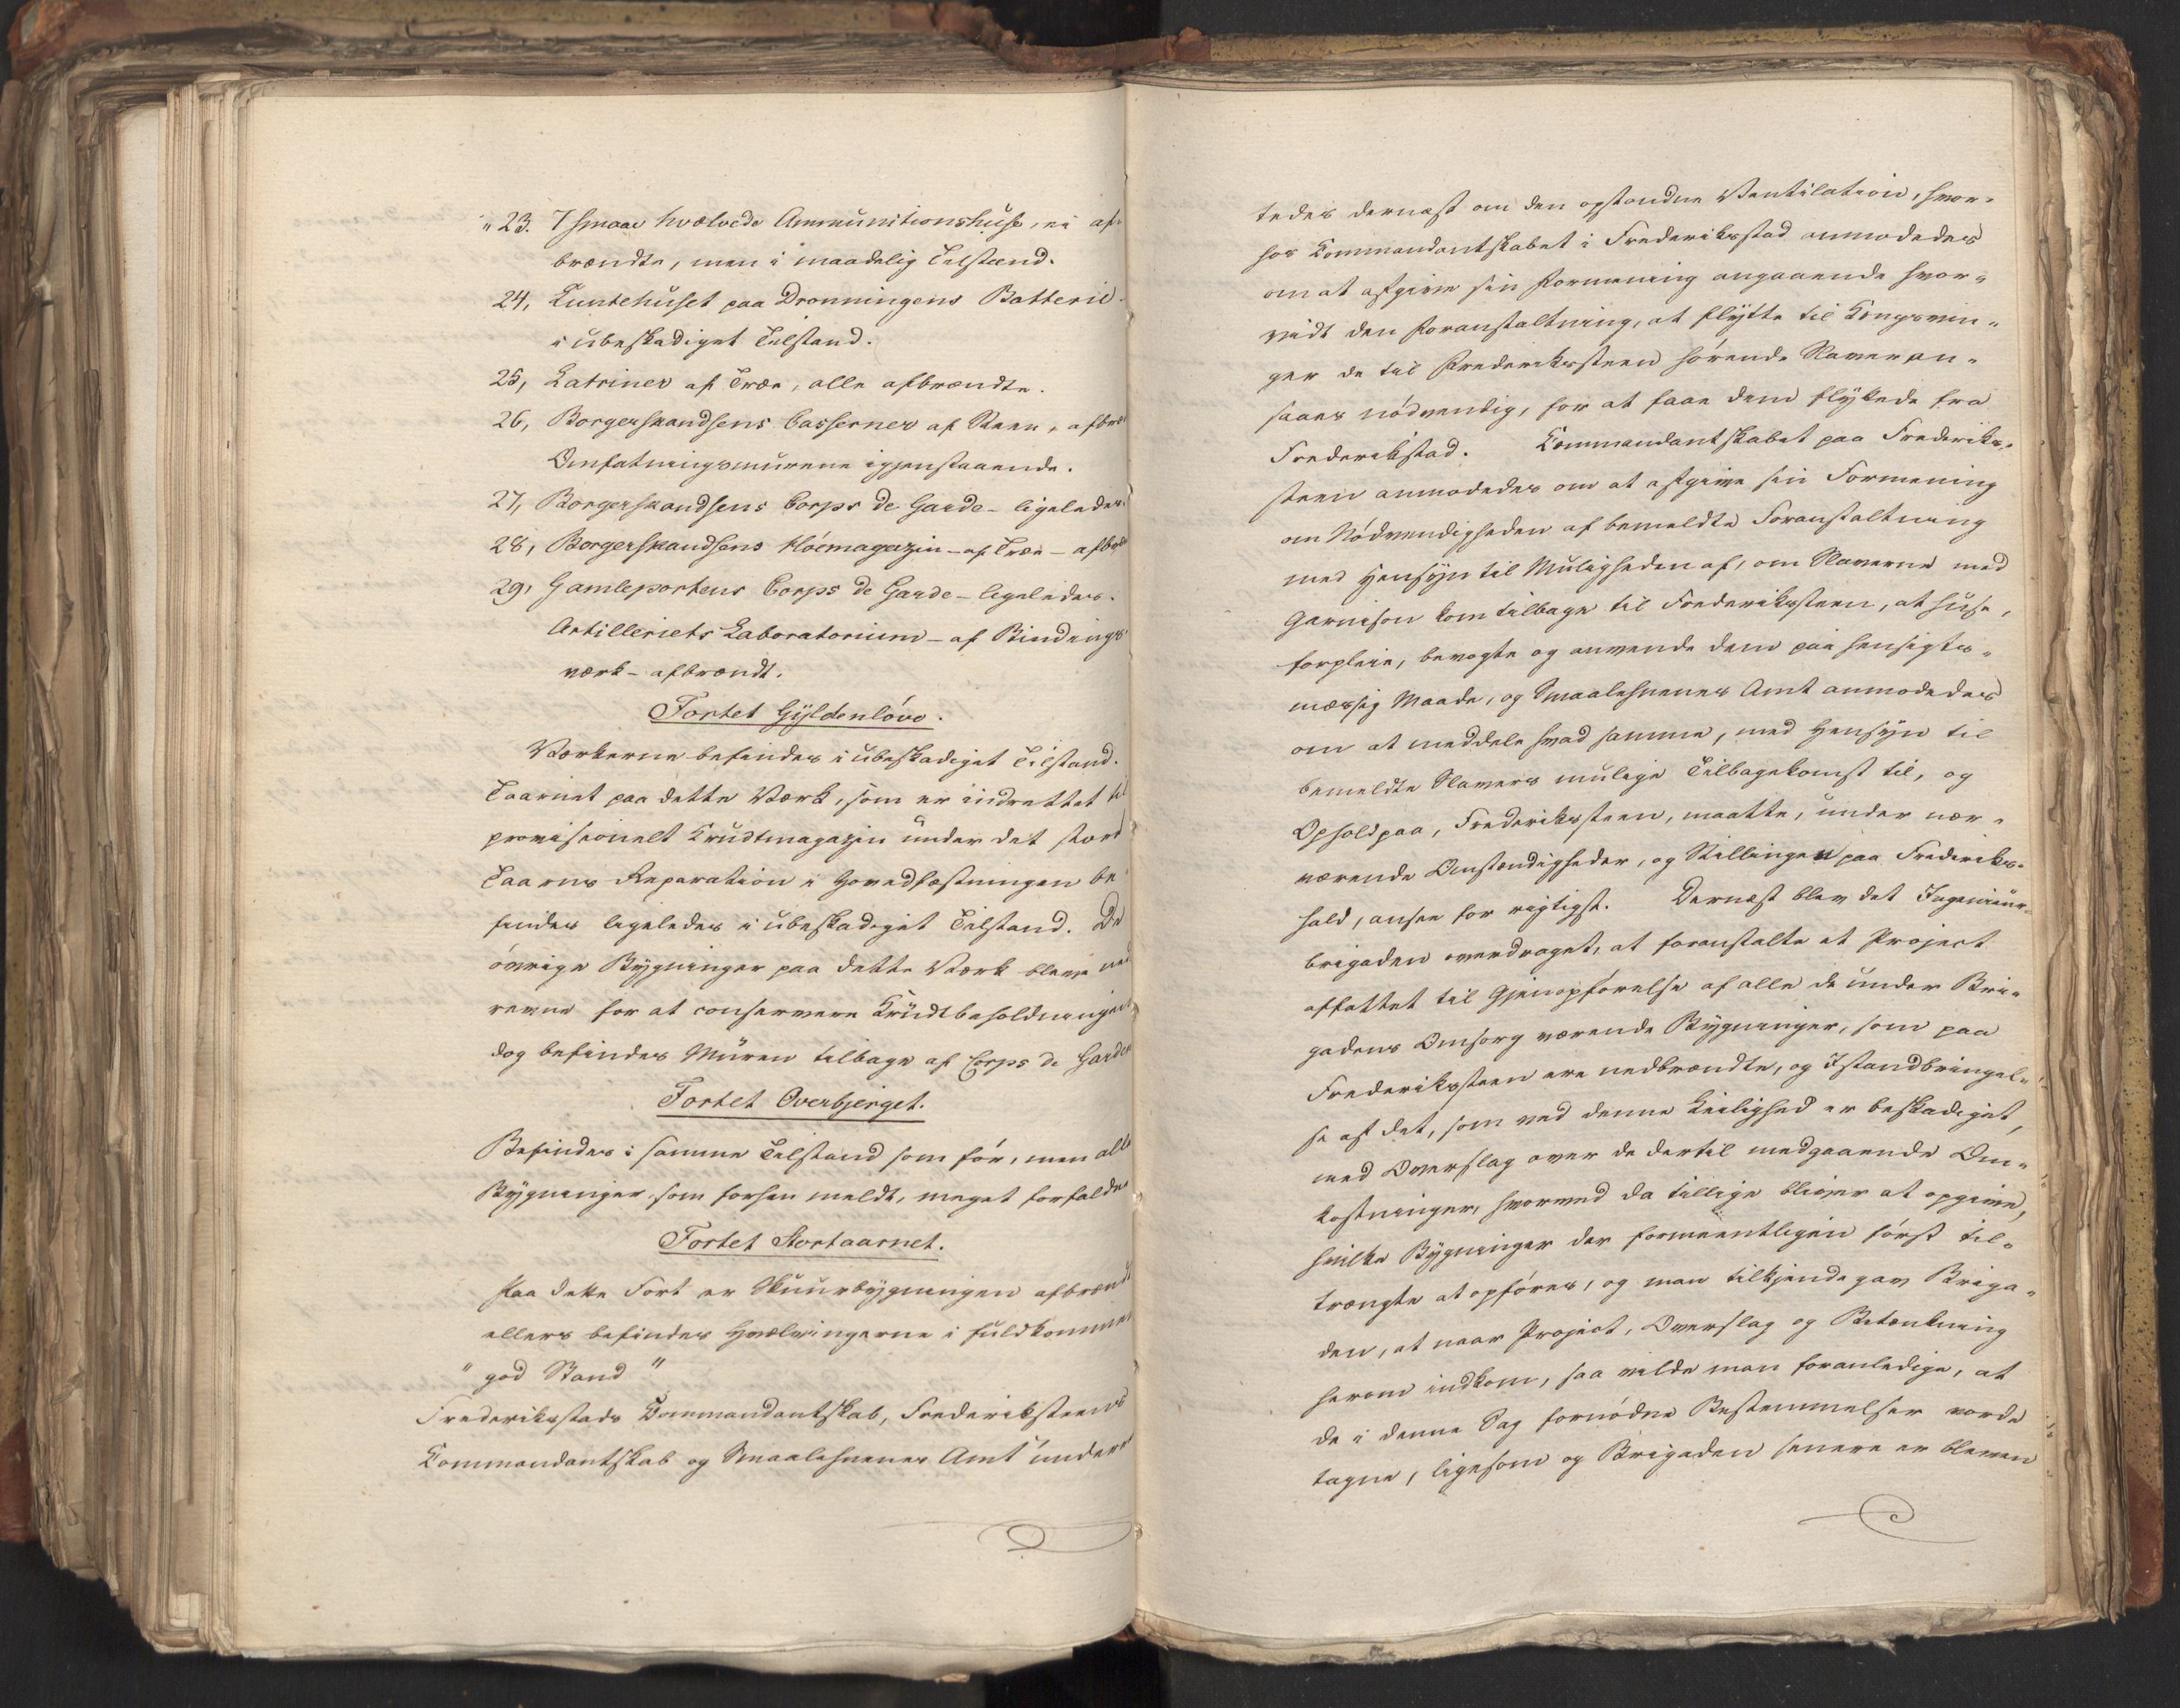 "23. 7 smaae hvælvede Ammunitionshuse, ei af-
brændte, men i maadelig Tilstand.
24, Luntehuset paa Dronningens Batterie
i ubeskadiget Tilstand.
25, Latriner af Træe, alle afbrændte.
26, Borgerskandsens Casserner af Steen,
Omfatningsmurene igjenstaaende.
27, Borgerskandsens Corps de Garde - ligeledes.
28, Borgerskandsens Höemagazin - af Træe -
29, Gamleportens Corps de Garde - ligeledes.
Artilleriets Laboratorium - af Bindings
værk - afbrændt.
Fortet Gyldenlöve.
Værkerne befindes i ubeskadiget Tilstand.
Taarnet paa dette Værk, som er indrettet til
provisionelt Krudtmagazin under det store
Taarns Reparation i Hovedfæstningen be-
findes ligeledes i ubeskadiget Tilstand. De
övrige Bygninger paa dette Værk bleve ned
revne for at conservere Krudtbeholdningen
dog befindes Muren tilbage af Corps de Garde
Fortet Overbjerget.
Befindes i samme Tilstand som för, men alle
Bygninger som forhen meldt, meget forfaldne
Fortet Stortaarnet.
Paa dette Fort er Skuurbygningen afbrændt
ellers befindes Hvælvingerne i fuldkommen
"god Stand"
Frederikstads Commandantskab, Frederiksteens
Commandantskab og Smaalehnenes Amt under
tedes dernæst om den opstandne Ventilation, hvor-
hos Commandantskabet i Frederiksstad anmodedes
om at afgive sin Formening angaaende hvor-
vidt den Foranstaltning, at flytte til Kongsvin-
ger de til Frederikssteen hörende Slaver an-
saaes nödvendig, for at faae dem flyttede fra
Frederikstad. Commandantskabet paa Frederiks-
steen anmodedes om at afgive sin Formening
om Nödvendigheden af bemeldte Foranstaltning
med Hensyn til Muligheden af, om Slaverne med
Garnison kom tilbage til Frederikssteen, at huse,
forpleie, bevogte og anvende dem paa hensigts-
mæssig Maade, og Smaalehnenes Amt anmodedes
om at meddele hvad samme, med Hensyn til
bemeldte Slavers mulige Tilbagekomst til, og
Ophold paa, Frederikssteen, maatte, under nær-
værende Omstændigheder, og Stillingen paa Frederiks-
hald, ansee for rigtigst. Dernæst blev det Ingenieur-
brigaden overdraget, at foranstalte et Project
affattet til Gjenopförelse af alle de under Bri-
gadens Omsorg værende Bygninger, som paa
Frederikssteen ere nedbrændte, og Istandbringel-
se af det, som ved denne Leilighed er beskadiget,
med Overslag over de dertil medgaaende Om-
kostninger, hvorved da tillige bliver at opgive,
hvilke Bygninger der formeentligen först til-
trængte at opföres, og man tilkjendegav Briga-
den, at naar Project, Overslag og Betænkning
herom indkom, saa vilde man foranledige, at
de i denne Sag fornödne Bestemmelser vorde
tagne, ligesom og Brigaden senere er bleven